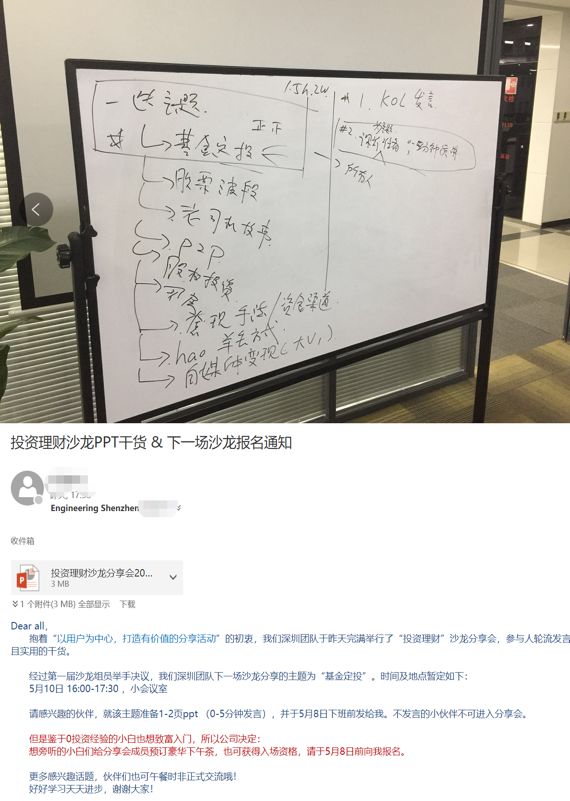 一 选 课题
1.5h. 2W.
基金定投
正 正
股票波段
老司机故事
P2P
股权投资
套现 手法/资金渠道
hao 羊毛方式
自媒体变现(大V,)
1. KOL 发言
#2
5分钟
投资理财沙龙PPT干货 & 下一场沙龙报名通知
Engineering Shenzhen
收件箱
投资理财沙龙分享会20...
3 MB
1 个附件(3 MB) 全部显示 下载
Dear all,
抱着“以用户为中心，打造有价值的分享活动”的初衷，我们深圳团队于昨天完满举行了“投资理财”沙龙分享会，参与人轮流发言
且实用的干货。
经过第一届沙龙组员举手决议，我们深圳团队下一场沙龙分享的主题为“基金定投”。时间及地点暂定如下：
5月10日 16:00-17:30 ，小会议室
请感兴趣的伙伴，就该主题准备1-2页ppt （0-5分钟发言），并于5月8日下班前发给我。不发言的小伙伴不可进入分享会。
但是鉴于0投资经验的小白也想致富入门，所以公司决定：
想旁听的小白们给分享会成员预订豪华下午茶，也可获得入场资格，请于5月8日前向我报名。
更多感兴趣话题，伙伴们也可午餐时非正式交流哦！
好好学习天天进步，谢谢大家！